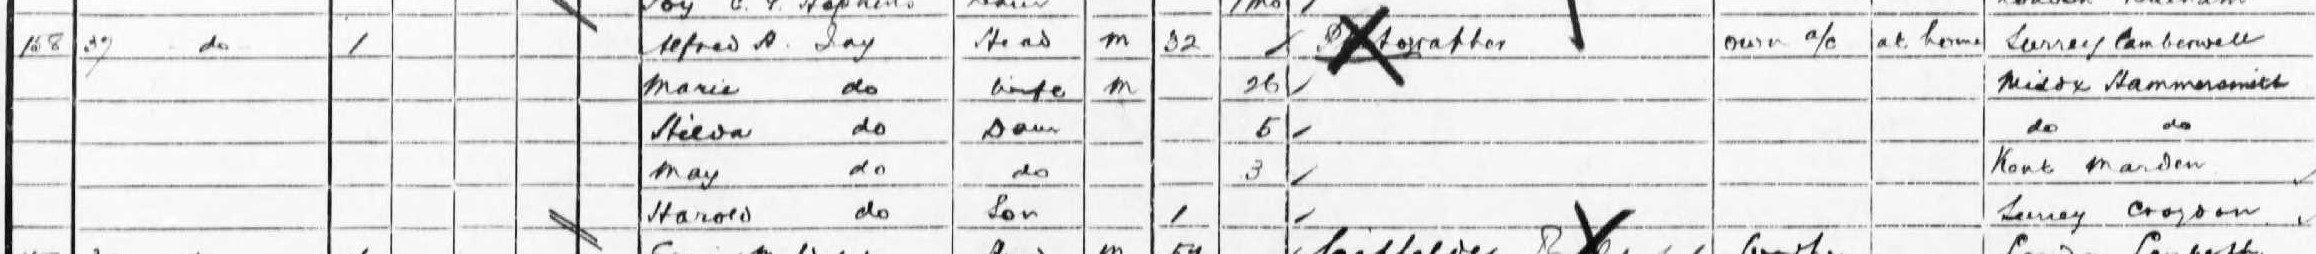 158 37 do 1 Alfred A. Jay Head m 32 Photographer own a/c at home Surrey Camberwell
Marie do Wife m 26 Middx Hammersmith
Hilda do Daur 5 do do
May do do 3 Kent Marden
Harold do Son 1 Surrey Croydon